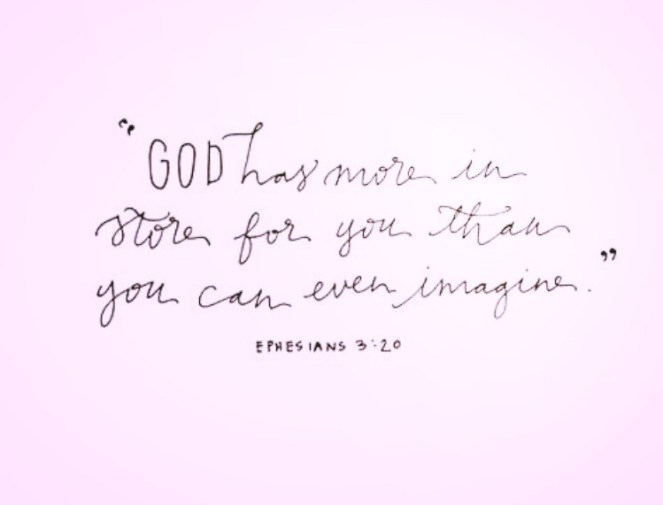 "GOD has more in
store for you than
you can even imagine."
EPHESIANS 3:20